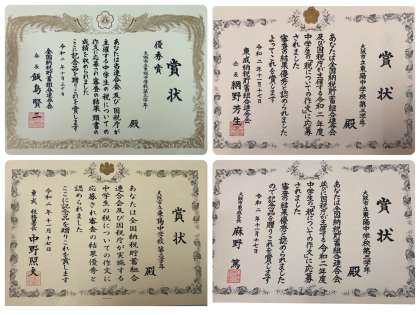 賞状
優秀賞
殿
あなたは当連合会及び国税庁が
主催する中学生の税についての
作文に応募され審査の結果頭書の
成績を収められました
ここに記念品を贈りこれを賞します
令和二年十一月十七日
全国納税貯蓄組合連合会
会長 飯島賢二
賞状
大阪市立東陽中学校第三学年
殿
あなたは全国納税貯蓄組合連合会
及び国税庁が主催する令和二年度
中学生の「税についての作文」に応募
されました
審査の結果優秀と認められました
よってこれを賞します
令和二年十一月十七日
東成納税貯蓄組合連合会
会長 網野芳生
賞状
大阪市立東陽中学校第三学年
殿
あなたは全国納税貯蓄組合
連合会及び国税庁が実施する
中学生の税についての作文に
応募され審査の結果優秀と
認められました
ここに記念品を贈りこれを賞します
令和二年十一月十七日
税務署長 中野照夫
賞状
大阪市立東陽中学校第三学年
殿
あなたは全国納税貯蓄組合連合会
並に国税庁が主催する令和二年度
中学生の「税についての作文」に応募
されました
審査の結果優秀と認められました
ので記念品を贈りこれを賞します
令和二年十一月十七日
麻野篤